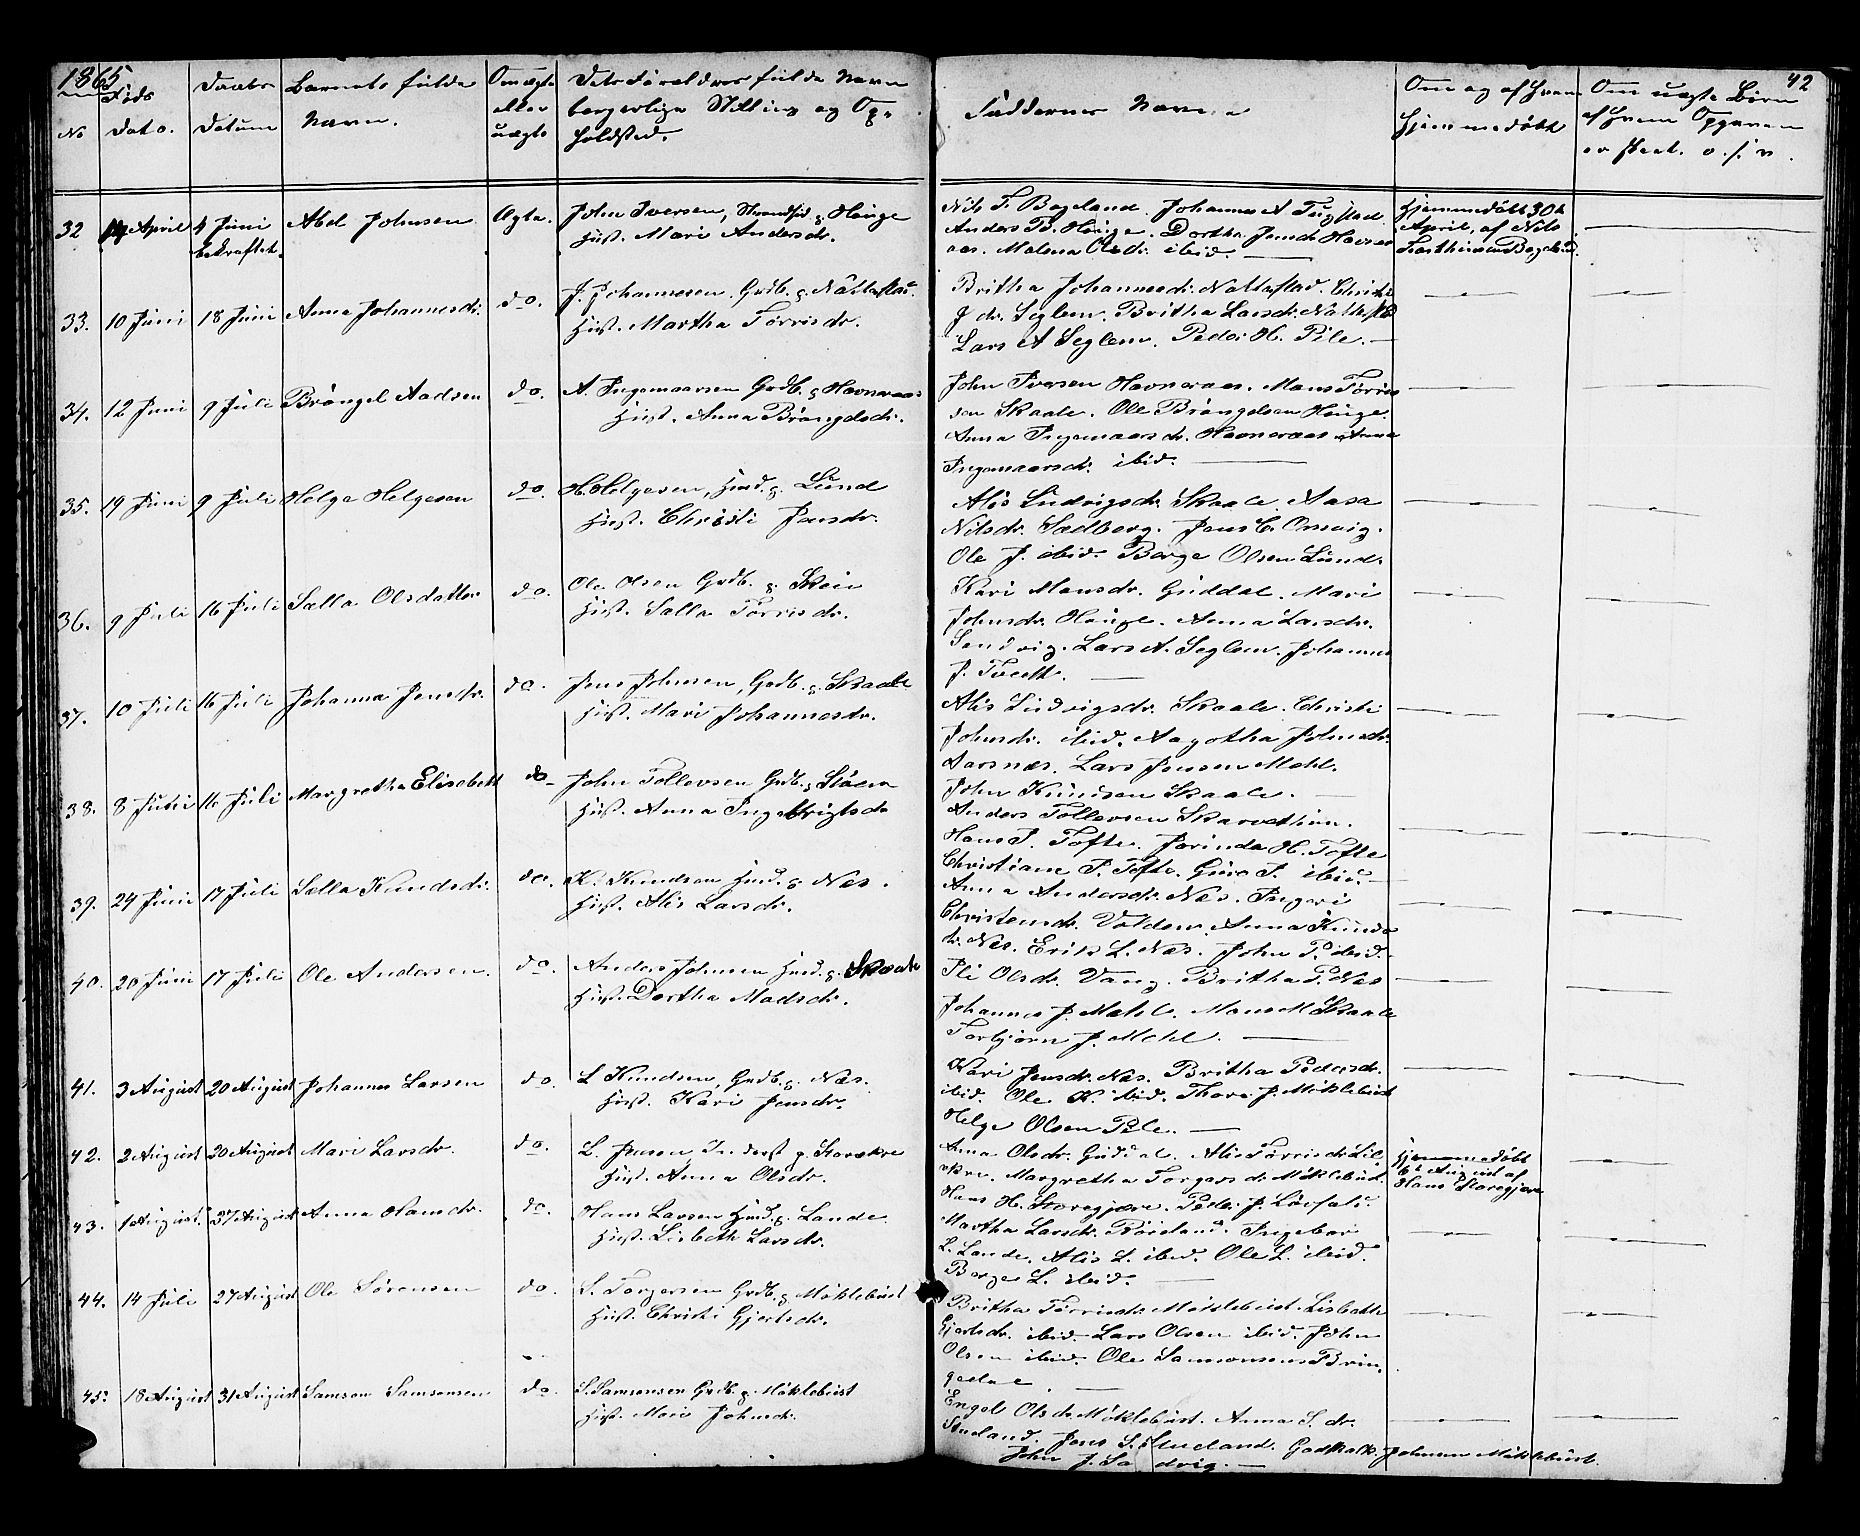 1865
42
No
Föds
Dato.
Daabs
Datum
Barnets fulde
Navn.
Om ægte
eller
uægte
Dets Forældres fulde Navn
borgerlige Stilling og Op-
holdsted.
Faddernes Navne
Om og af hvem
hjemmedøbt
Om uægte Börn
af hvem Opgaven
er skeet. o. s. v.
32 April 4 Juni Abel Johnsen Ægte. John Iversen, Strandsid. g. Höüge
bekræftet. Hust. Mari Andersdr.
Nils T. Bogeland. Johannes A
Anders B. Höüge. Dorthe Jensdr Havner
aas. Malena Olsdr. ibid.
Hjemmedöbt 30te
April, af Nils
33. 10 Juni 18 Juni Anna Johannesdr. do. J. Johannesen. Grdb. g. Nättestad.
Hust. Martha Torrisdr.
Britha Johannesdr. Nattestad. Christi
J dr. Seglem. Britha Larsdr. Nattestd
Lars A Seglem. Peder H. Pile.
34. 12 Juni 9 Juli Bröngel Aadsen do. A. Ingemaarsen Grdb. g Havneraas
Hust. Anna Bröngelsdr.
John Iversen Havneraas. Mons Törris
sen Skaale. Ole Bröngelsen Höüge.
Anna Ingemaarsdr. Havneraas Anna
Ingemaarsdr. ibid.
35. 19 Juni 9 Juli Helge Helgesen do. H. Helgesen, Husd. g. Lünd
Hust. Christi Jensdr.
Alis Lüdvigsdr. Skaale. Aasa
Nilsdr. Sælberg. Jens C. Omvig.
Ole J. ibid. Börge Olsen Lünd.
36. 9 Juli 16 Juli Sælla Olsdatter do. Ole Olsen Grdb. g. Skeie
Hust. Salla Torrisdr.
Kari Monsdr. Güddal. Mari
Johnsdr. Höüge. Anna Larsdr.
Sandvig. Lars A. Seglem. Johannes
J. Tveit.
37. 10 Juli 16 Juli Johanna Jensdr. do. Jens Johnsen, Grdb. g. Skaale
Hust. Mari Johannesdr.
Alis Lüdvigsdr. Skaale. Christi
Johnsdr. ibid. Aagotha Johnsdr.
Aarsnæs. Lars Jensen Mehl.
John Knüdsen Skaale.
38. 8 Juni 16 Juli Margretha Elisabeth do John Tollevsen Grdb. g
Hust. Anna Ingebrigtsdr
Anders Tollevsen
Hans P. Tofte. Jorinda H. Tofte
Christiane P. Tofte. Güro P. ibid.
39. 24 Juni 17 Juli Sælla Knudsdr. do. K. Knudsen Husd. g Næs.
Hust. Alis Larsdr.
Anna Andersdr. Næs. Ingeri
Christensdr. Valdem. Anna Knüds
dr. Næs. Erik L. Næs. John P. ibid.
40. 20 Juni 17 Juli Ole Andersen. do. Anders Johnsen Husd. g. Skaale
Hust. Dorthe Madsdr.
Ili Olsdr. Vang. Britha P. Næs
Johannes J. Mehl. Mons M Skaale
Torbjörn J. Mehl.
41. 3 August 20 August Johannes Larsen do. L Knudsen, Grdb. g. Næs.
Hust. Kari Jensdr.
Kari Jensdr. Næs. Britha Pedersdr.
ibid. Ole K. ibid. Thore J. Möklebüst
Helge Olsen Pile.
42. 2 August 20 August Mari Larsdr. do. L. Jensen Inderst g. Storækre
Hust. Anna Olsdr.
Anna Olsdr. Güddal. Alis Törrisdr Lil
ækre. Margretha Torgersdr Möklebüst.
Hans H. Storegjere. Peder J.
Hjemmedöbt
6te August af
Hans Storegjere
43. 1 August. 27 August Anna Hansdr. do. Hans Larsen Husd. g. Lande
Hust. Lisbeth Larsdr.
Martha Larsdr. Röiseland. Ingebor
L. Lande. Alis L. ibid. Ole L. ibid.
Börge L. ibid.
44. 14 Juli 27 August Ole Sörensen do. S. Torgersen Grdb. g Möklebüst
Hust. Christi Gjertsdr.
Britha Törrisdr. Möklebüst. Lisbeth
Gjertsdr. ibid. Lars Olsen ibid. John
Olsen ibid. Ole Samsonsen Brin
gedal.
45. 18 August 31 August Samson Samsonsen do. S. Samsonsen Grdb. g. Möklebüst
Hust. Mari Johnsdr.
Engel Olsdr. Möklebüst. Anna S. dr.
Stueland. Jens S. Stueland. Gadskalk Johnsen Möklebüst.
John J. Sandvig.